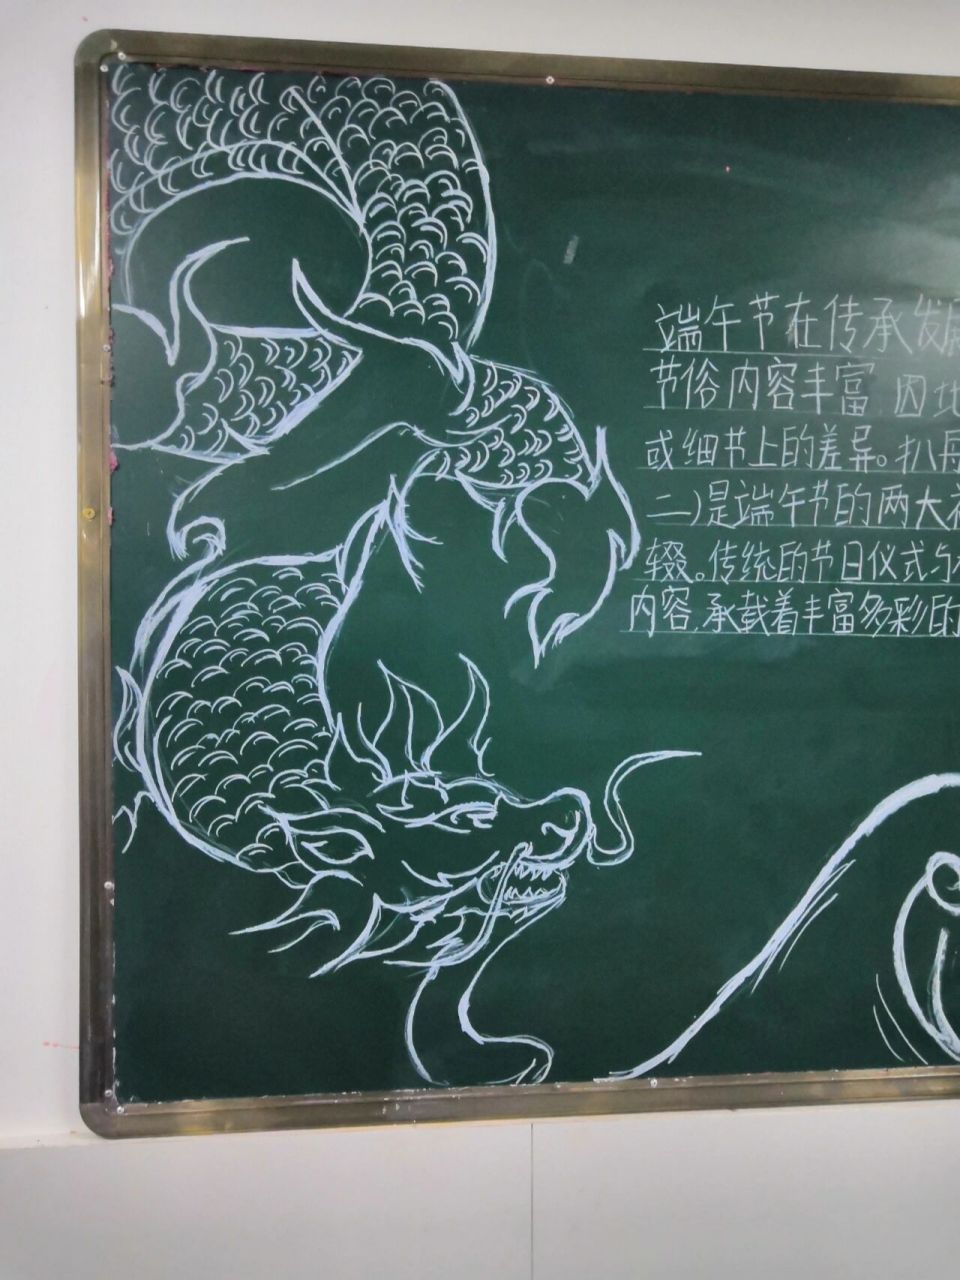 端午节在传承发展
节俗内容丰富 因
或细节上的差异。扒舟
二)是端午节的两大
辍。传统的节日仪式与
内容,承载着丰富多彩的